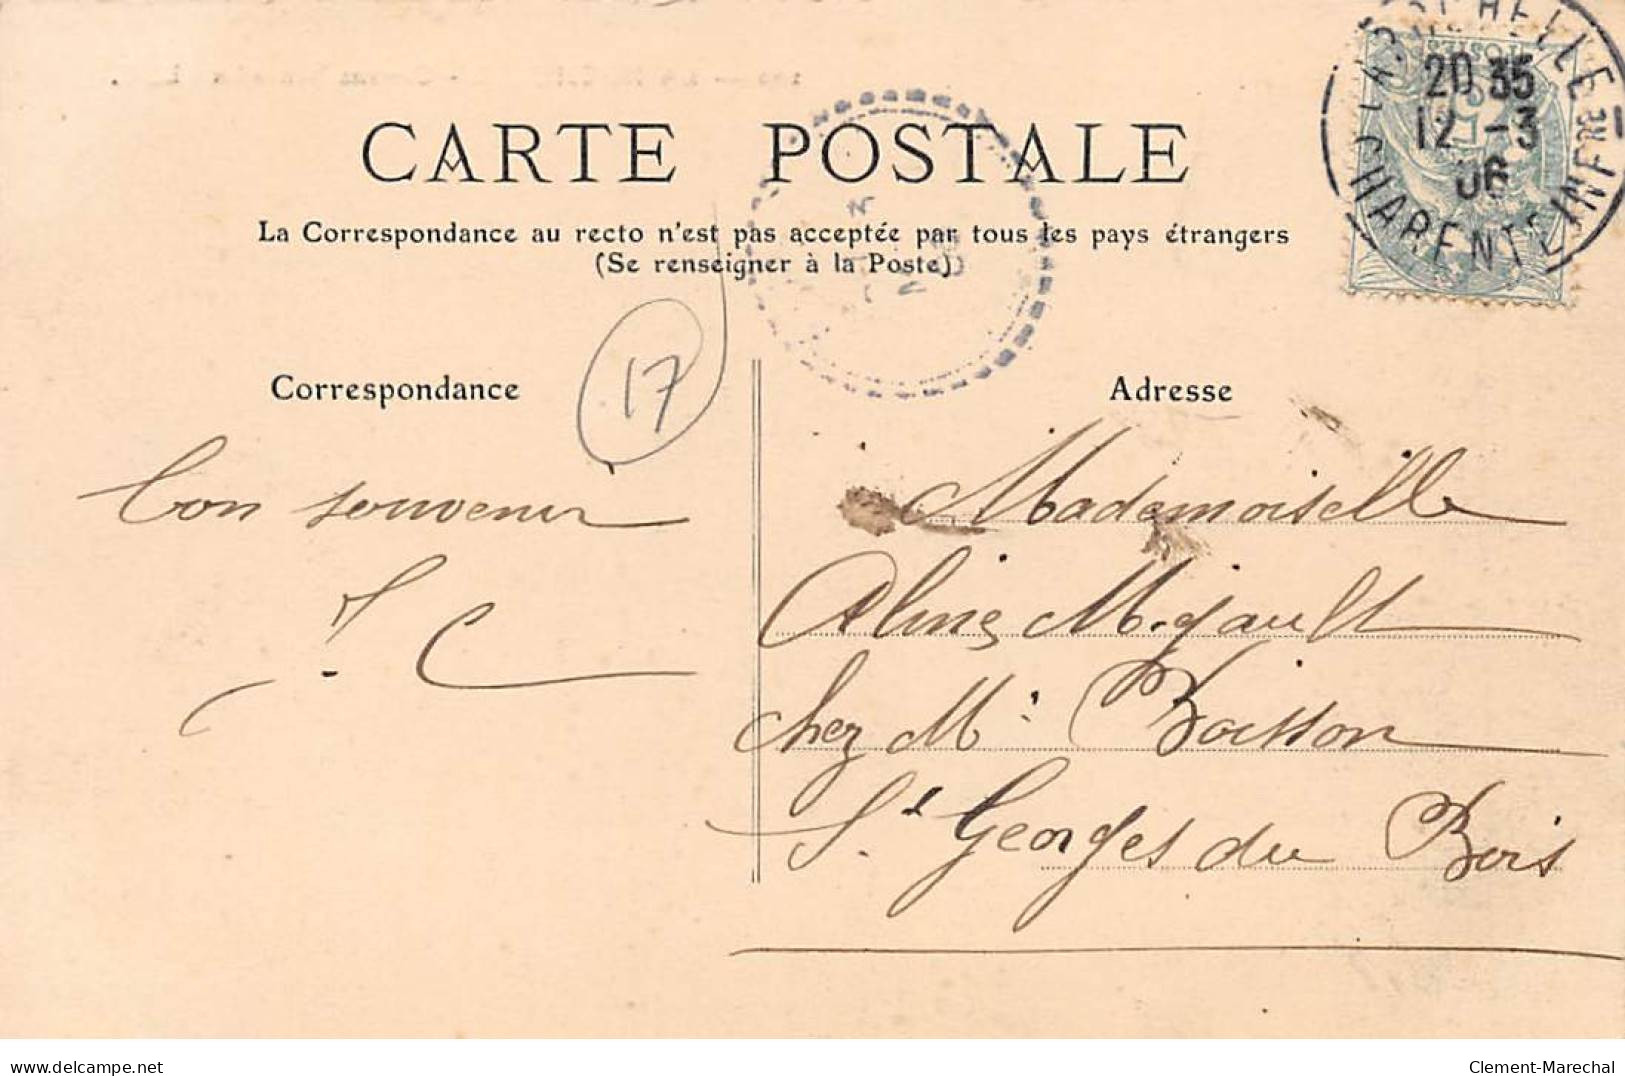 LA ROCHELLE
20 35
12 -3
06
CHARENTE INFRE
CARTE POSTALE
La Correspondance au recto n'est pas acceptée par tous les pays étrangers
(Se renseigner à la Poste)
17
Correspondance
Bon souvenir
C
Adresse
Mademoiselle
Aline Migault
chez Mr Boisson
St Georges du Bois
www.delcampe.net
Clement-Marechal